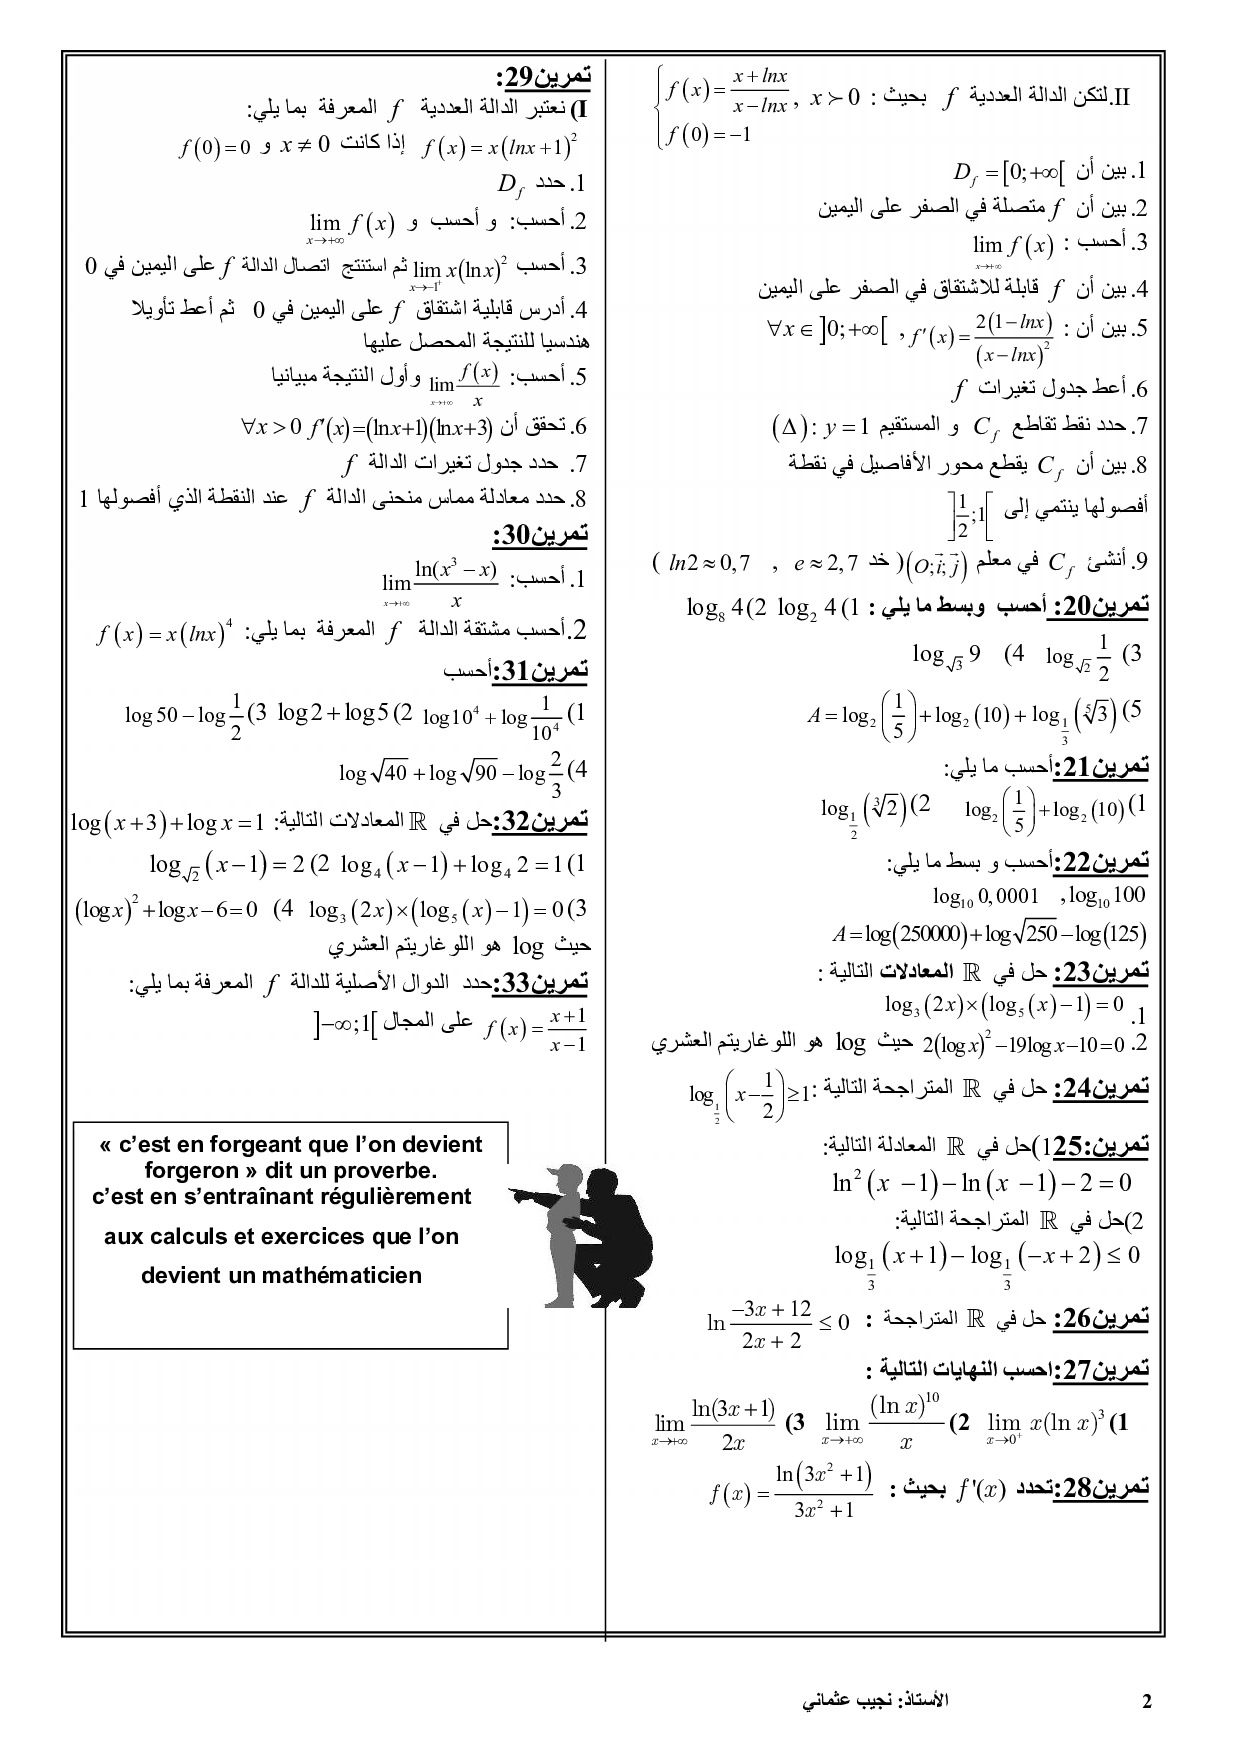 II.لتكن الدالة العددية f بحيث : { f(x) = (x + lnx)/(x − lnx) , x ≻ 0
f(0) = −1
1. بين أن D_f = [0;+∞[
2. بين أن f متصلة في الصفر على اليمين
3. أحسب : lim_{x→+∞} f(x)
4. بين أن f قابلة للاشتقاق في الصفر على اليمين
5. بين أن : ∀x ∈ ]0;+∞[ , f'(x) = 2(1 − lnx)/(x − lnx)²
6. أعط جدول تغيرات f
7. حدد نقط تقاطع C_f و المستقيم (Δ): y = 1
8. بين أن C_f يقطع محور الأفاصيل في نقطة
أفصولها ينتمي إلى ]1/2;1[
9. أنشئ C_f في معلم (O;i⃗;j⃗) ( خد e ≈ 2,7 , ln2 ≈ 0,7 )
تمرين20: أحسب وبسط ما يلي : 1) log₂ 4 2) log₈ 4
3) log_{√2} 1/2 4) log_{√3} 9
5) A = log₂(1/5) + log₂(10) + log_{1/3}(⁵√3)
تمرين21:أحسب ما يلي:
1) log₂(1/5) + log₂(10) 2) log_{1/2}(³√2)
تمرين22:أحسب و بسط ما يلي:
log₁₀ 100 , log₁₀ 0,0001
A = log(250000) + log√250 − log(125)
تمرين23: حل في ℝ المعادلات التالية :
1. log₃(2x)×(log₅(x) − 1) = 0
2. 2(log x)² − 19log x − 10 = 0 حيث log هو اللوغاريتم العشري
تمرين24: حل في ℝ المتراجحة التالية : log_{1/2}(x − 1/2) ≥ 1
تمرين25:1)حل في ℝ المعادلة التالية:
ln²(x −1) − ln(x −1) − 2 = 0
2)حل في ℝ المتراجحة التالية:
log_{1/3}(x + 1) − log_{1/3}(−x + 2) ≤ 0
تمرين26: حل في ℝ المتراجحة : ln (−3x + 12)/(2x + 2) ≤ 0
تمرين27:احسب النهايات التالية :
1) lim_{x→0⁺} x(ln x)³ 2) lim_{x→+∞} (ln x)¹⁰/x 3) lim_{x→+∞} ln(3x + 1)/2x
تمرين28:تحدد f'(x) بحيث : f(x) = ln(3x² + 1)/(3x² + 1)
تمرين29:
I) نعتبر الدالة العددية f المعرفة بما يلي:
f(x) = x(lnx + 1)² إذا كانت x ≠ 0 و f(0) = 0
1. حدد D_f
2. أحسب: و أحسب و lim_{x→+∞} f(x)
3. أحسب lim_{x→−1⁺} x(ln x)² ثم استنتج اتصال الدالة f على اليمين في 0
4. أدرس قابلية اشتقاق f على اليمين في 0 ثم أعط تأويلا
هندسيا للنتيجة المحصل عليها
5. أحسب: lim_{x→+∞} f(x)/x وأول النتيجة مبيانيا
6. تحقق أن ∀x > 0 f'(x)=(lnx+1)(lnx+3)
7. حدد جدول تغيرات الدالة f
8. حدد معادلة مماس منحنى الدالة f عند النقطة الذي أفصولها 1
تمرين30:
1. أحسب: lim_{x→+∞} ln(x³ − x)/x
2.أحسب مشتقة الدالة f المعرفة بما يلي: f(x) = x(lnx)⁴
تمرين31:أحسب
1) log10⁴ + log 1/10⁴ 2) log2 + log5 3) log50 − log 1/2
4) log√40 + log√90 − log 2/3
تمرين32:حل في ℝ المعادلات التالية: log(x + 3) + log x = 1
1) log₄(x − 1) + log₄ 2 = 1 2) log_{√2}(x − 1) = 2
3) log₃(2x)×(log₅(x) − 1) = 0 4) (log x)² + log x − 6 = 0
حيث log هو اللوغاريتم العشري
تمرين33:حدد الدوال الأصلية للدالة f المعرفة بما يلي:
f(x) = (x + 1)/(x − 1) على المجال ]−∞;1[
« c’est en forgeant que l’on devient
forgeron » dit un proverbe.
c’est en s’entraînant régulièrement
aux calculs et exercices que l’on
devient un mathématicien
الأستاذ: نجيب عثماني
2